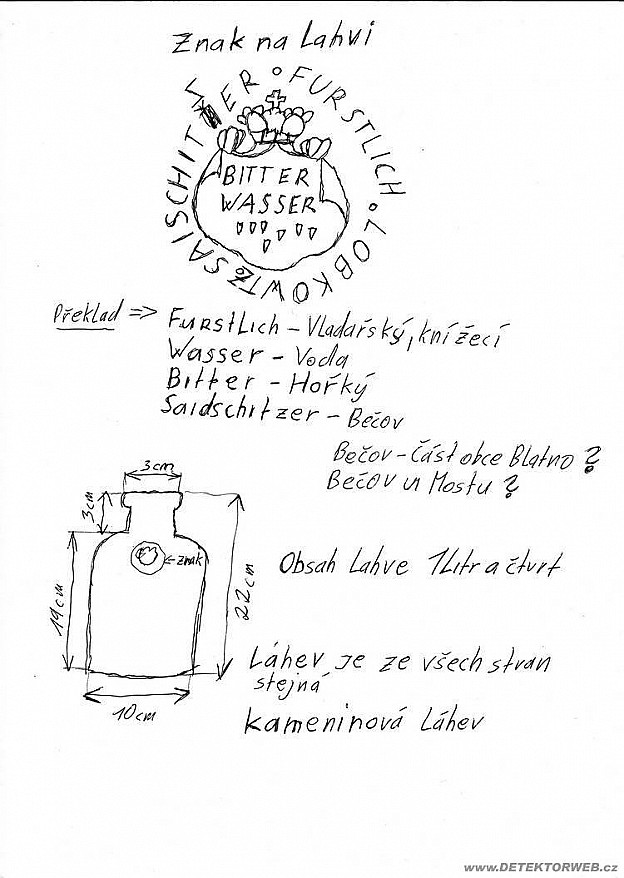 Znak na Lahvi
FURSTLICH ∘ LOBKOWITZ
SAISCHITZER ∘
BITTER
WASSER
Překlad => Furstlich – Vladařský, knížecí
Wasser – Voda
Bitter – Hořký
Saidschitzer – Bečov
Bečov – část obce Blatno ?
Bečov u Mostu ?
3cm
3cm
← znak
19cm
22cm
10cm
Obsah Lahve 1Litr a čtvrt
Láhev je ze všech stran
stejná
Kameninová Láhev
www.DETEKTORWEB.cz